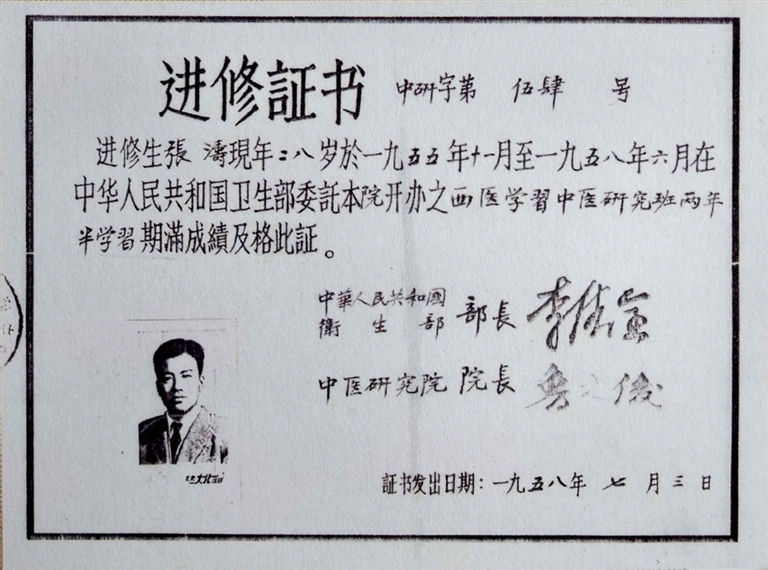 进修証书 中研字第 伍肆 号
进修生張 濤現年二八岁於一九五五年十一月至一九五八年六月在
中华人民共和国卫生部委託本院开办之西医学習中医研究班两年
半学習期滿成績及格此証。
中華人民共和國
衛生部 部長 李德全
中医研究院 院長 魯之俊
証书发出日期：一九五八年 七 月 三 日